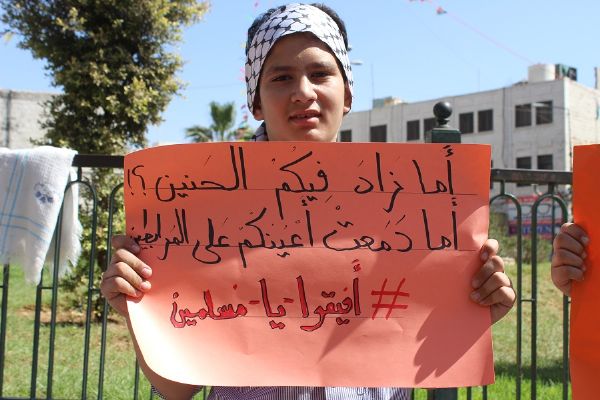 أَما زادَ فِيكُمْ الحَنين ؟!
أما دَمَعتْ أَعْيُنكُمْ عَلى المَرابطين
# أَفيقوا - يا - مُسلمين